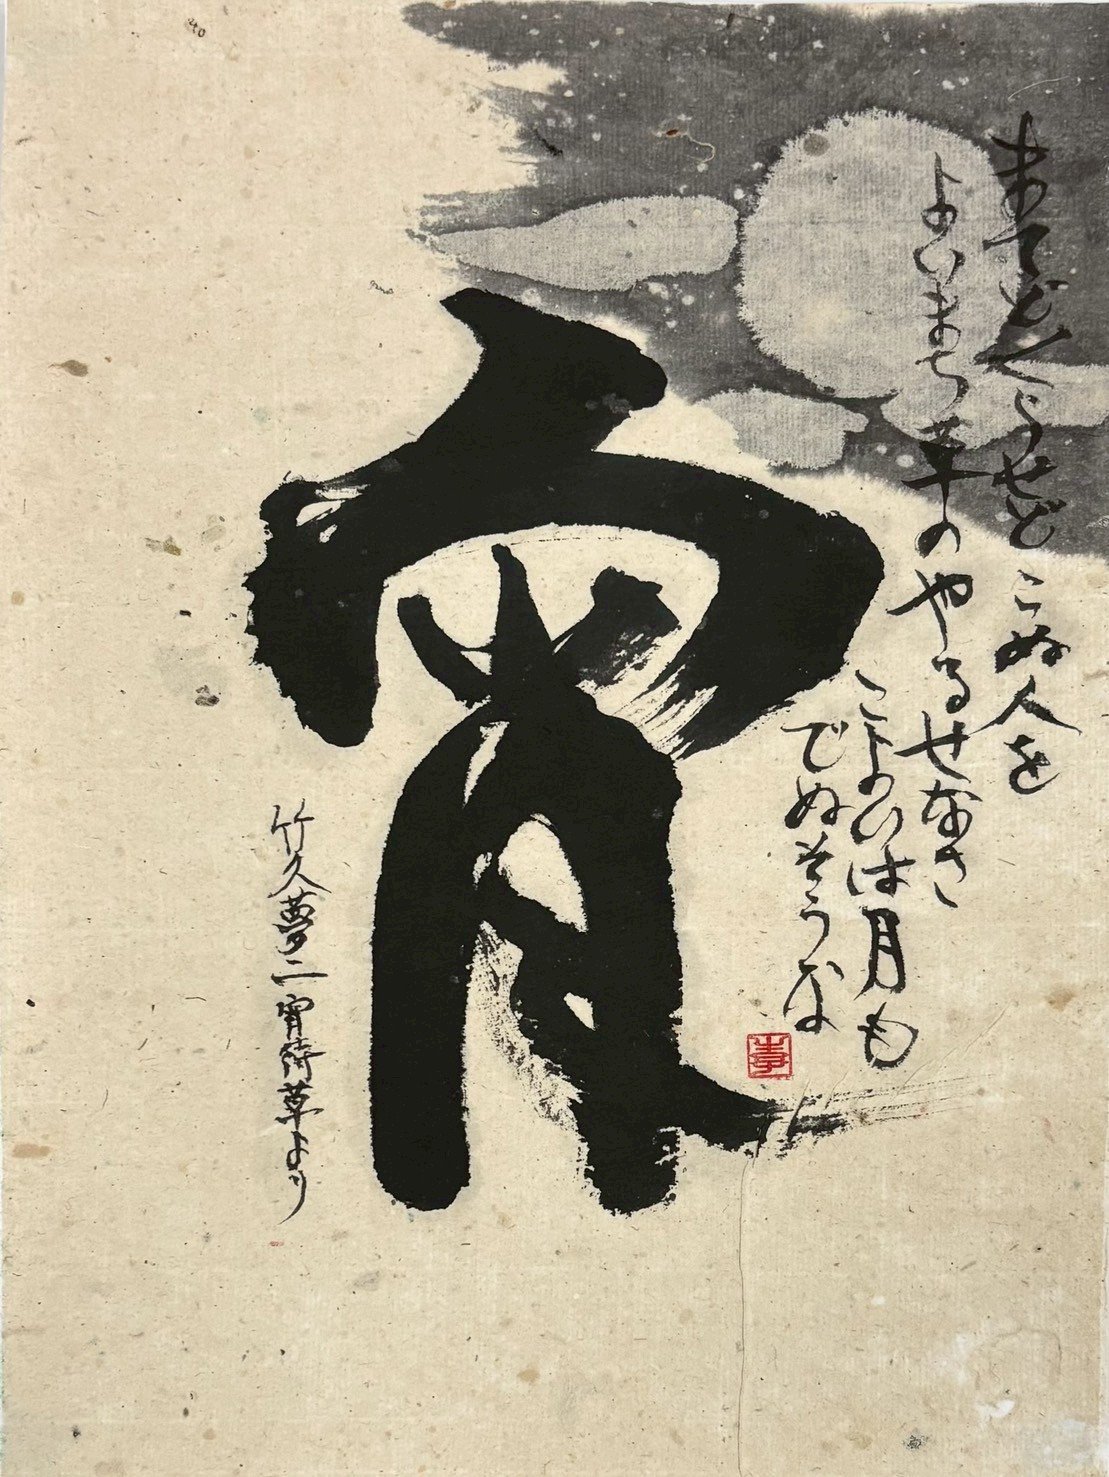 まてどくらせど こぬ人を
よいまち草のやるせなさ
こよひは月も
でぬさうな
宵
竹久夢二宵待草より